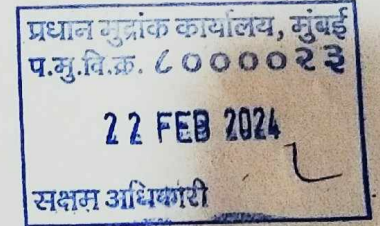 प्रधान मुद्रांक कार्यालय, मुंबई
प.मु.वि.क्र. ८००००२३
22 FEB 2024
सक्षम अधिकारी